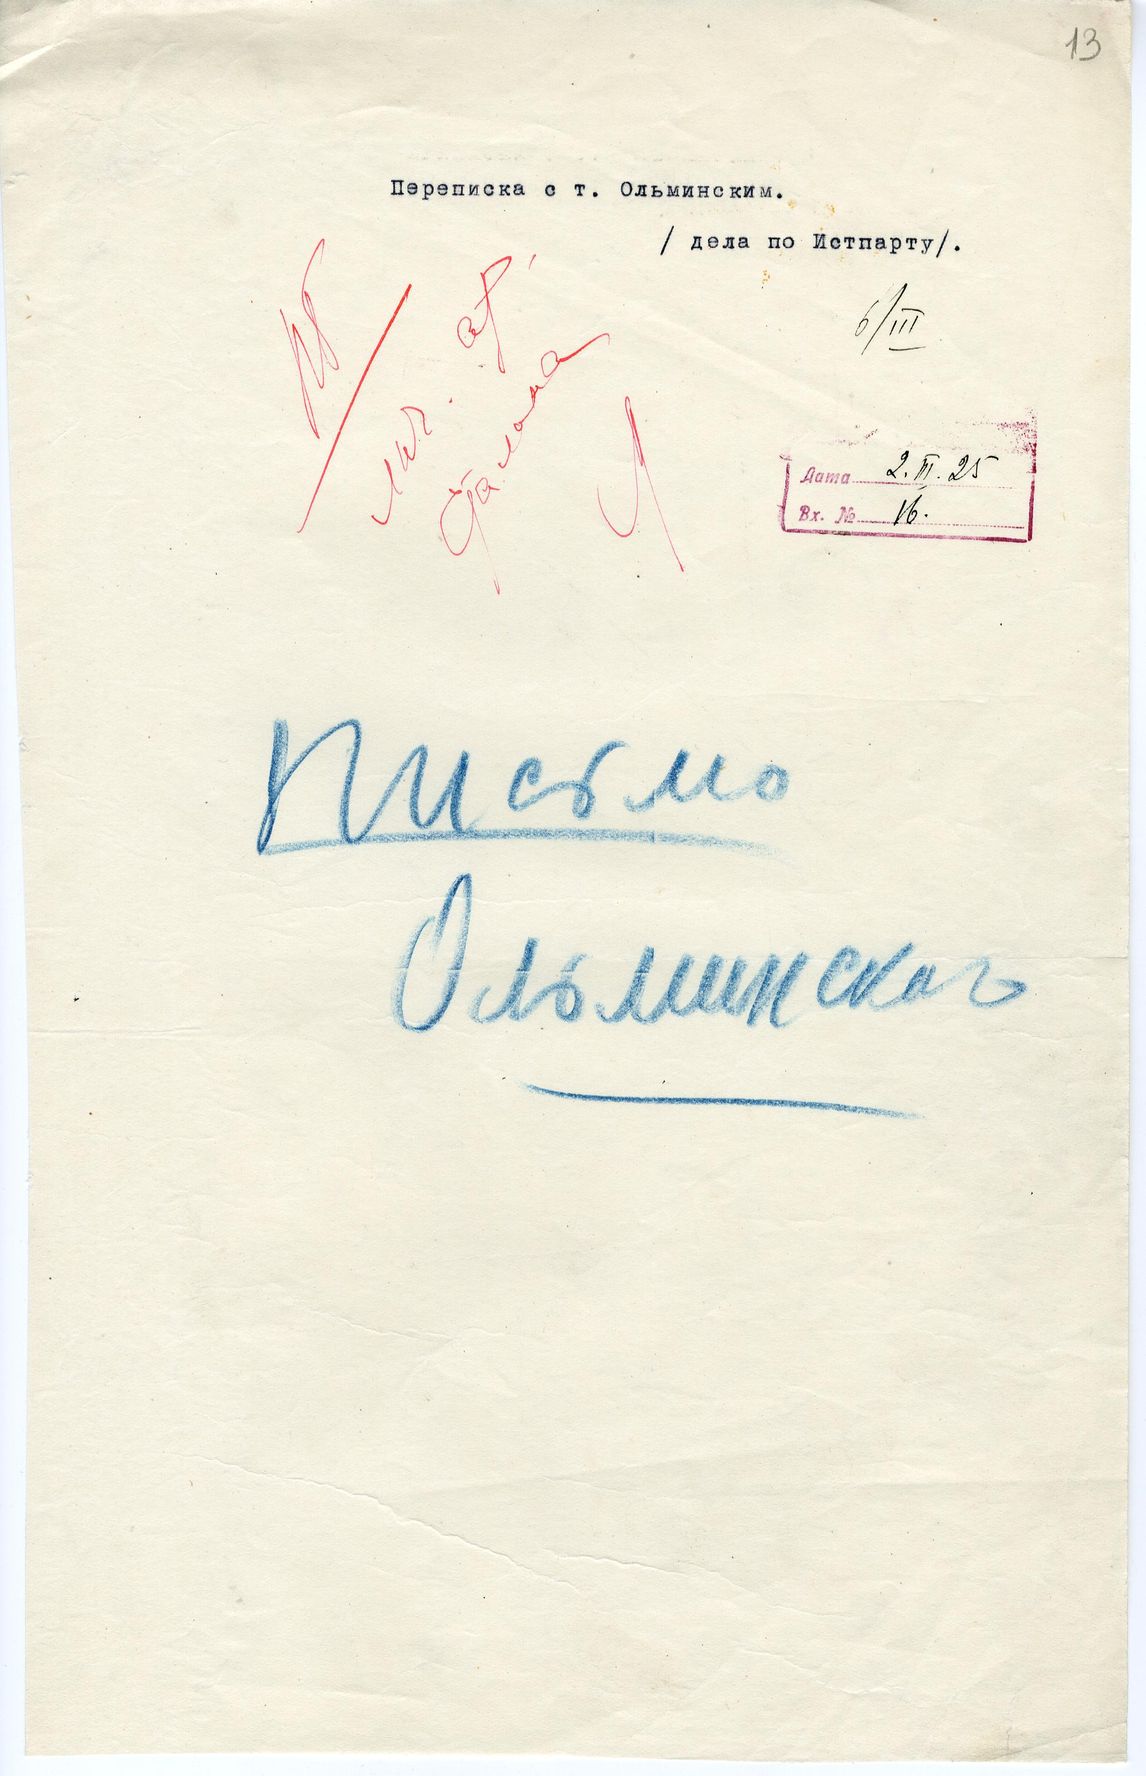 13
Переписка с т. Ольминским.
/ дела по Истпарту/.
6/III
лич. ар.
Сталина
Дата 2.III.25
Вх. № 16.
Письмо
Ольминского